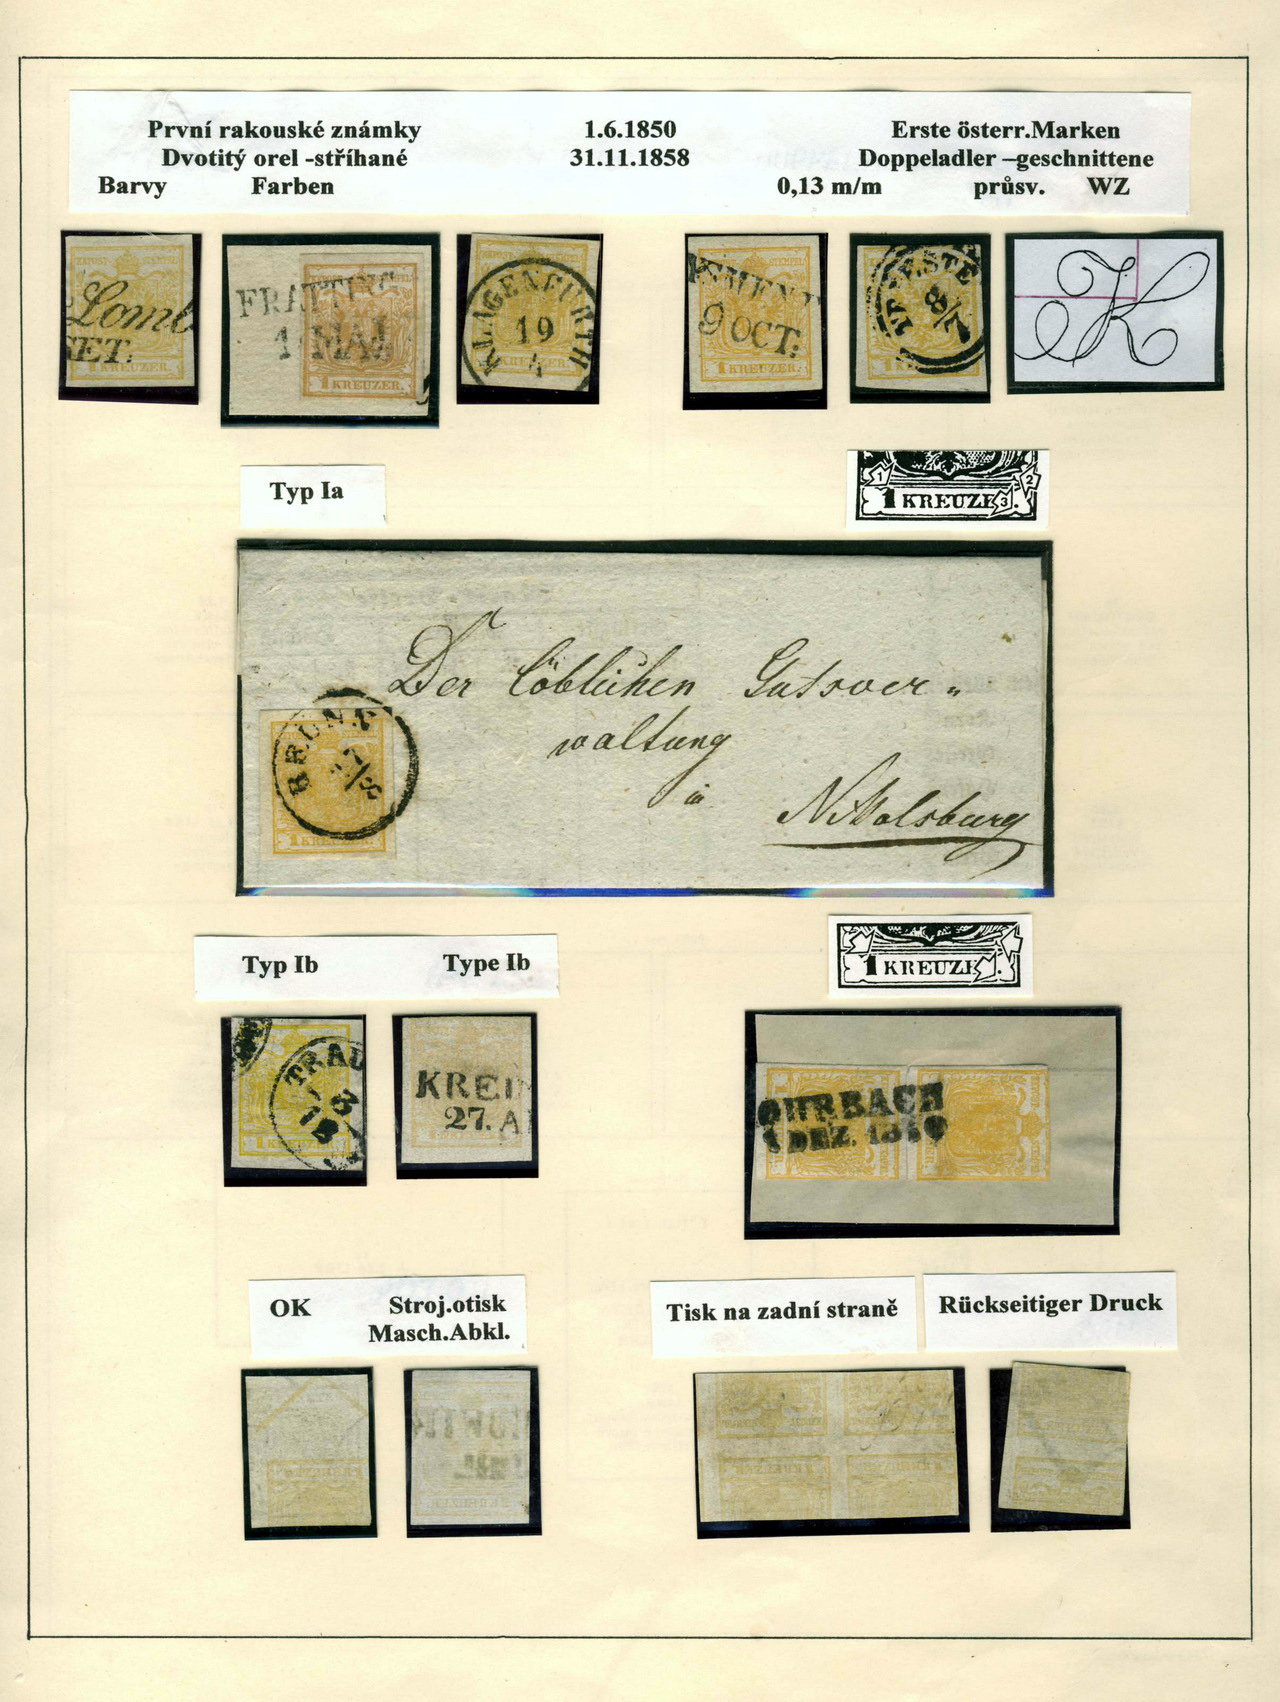 První rakouské známky 1.6.1850 Erste österr.Marken
Dvotitý orel -stříhané 31.11.1858 Doppeladler –geschnittene
Barvy Farben 0,13 m/m průsv. WZ
Lomb
ET.
STEMPEL
1 KREUZER.
FRATTING
MAI
1 KREUZER.
KLAGENFURTH
19
4
9 OCT:
1 KREUZER.
TRIESTE
8/7
K
Typ Ia
1 2
1 KREUZE 3 .
Der löblichen Gutsver„
waltung
in
Nikolsburg
BRÜNN
1 KREUZER.
Typ Ib Type Ib
1 KREUZE .
TRAU
1 KREUZER
KREM
27. A
OHRBACH
DEZ. 18
OK Stroj.otisk
Masch.Abkl.
Tisk na zadní straně
Rückseitiger Druck